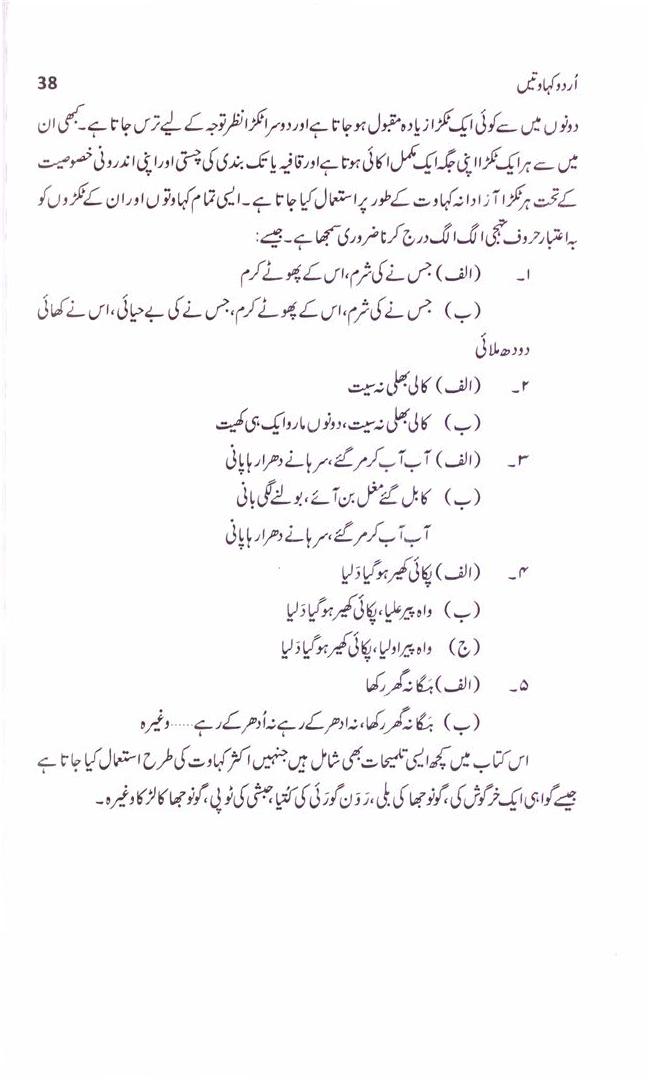 اُردو کہاوتیں 38
دونوں میں سے کوئی ایک ٹکڑا زیادہ مقبول ہو جاتا ہے اور دوسرا ٹکڑا نظر توجہ کے لیے ترس جاتا ہے۔ کبھی ان
میں سے ہر ایک ٹکڑا اپنی جگہ ایک مکمل اکائی ہوتا ہے اور قافیہ یا تک بندی کی چستی اور اپنی اندرونی خصوصیت
کے تحت ہر ٹکڑا آزادانہ کہاوت کے طور پر استعمال کیا جاتا ہے۔ ایسی تمام کہاوتوں اور ان کے ٹکڑوں کو
بہ اعتبار حروف تہجی الگ الگ درج کرنا ضروری سمجھا ہے۔ جیسے:
۱۔ (الف) جس نے کی شرم، اس کے پھوٹے کرم
(ب) جس نے کی شرم، اس کے پھوٹے کرم، جس نے کی بے حیائی، اس نے کھائی
دودھ ملائی
۲۔ (الف) کالی بھلی نہ سیت
(ب) کالی بھلی نہ سیت، دونوں مارو ایک ہی کھیت
۳۔ (الف) آب آب کر مر گئے، سرہانے دھرا رہا پانی
(ب) کابل گئے مغل بن آئے، بولنے لگی بانی
آب آب کر مر گئے، سرہانے دھرا رہا پانی
۴۔ (الف) پکائی کھیر ہو گیا دَلیا
(ب) واہ پیر علیا، پکائی کھیر ہو گیا دَلیا
(ج) واہ پیر اولیا، پکائی کھیر ہو گیا دَلیا
۵۔ (الف) ہَگا نہ گھر رکھا
(ب) ہَگا نہ گھر رکھا، نہ ادھر کے رہے نہ اُدھر کے رہے...... وغیرہ
اس کتاب میں کچھ ایسی تلمیحات بھی شامل ہیں جنہیں اکثر کہاوت کی طرح استعمال کیا جاتا ہے
جیسے گواہی ایک خرگوش کی، گونو جھا کی بلی، رَوَن گورَئی کی کُتیا، حبشی کی ٹوپی، گونو جھا کا لڑکا وغیرہ۔